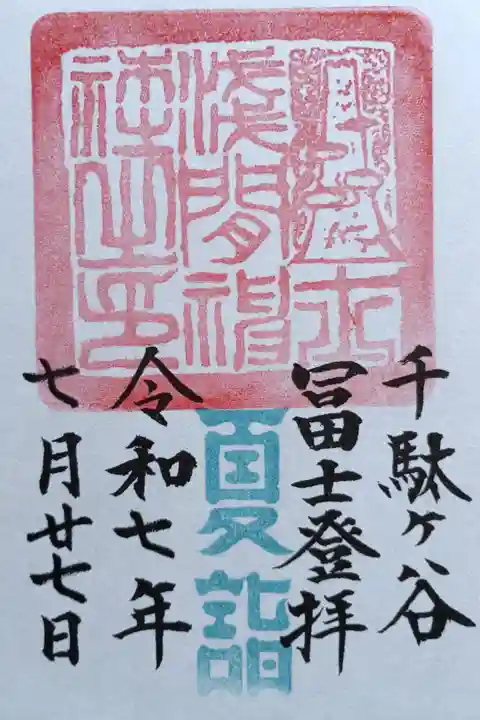 淺間神
社之印
千駄ヶ谷
冨士登拝
夏詣
令和七年
七月廿七日